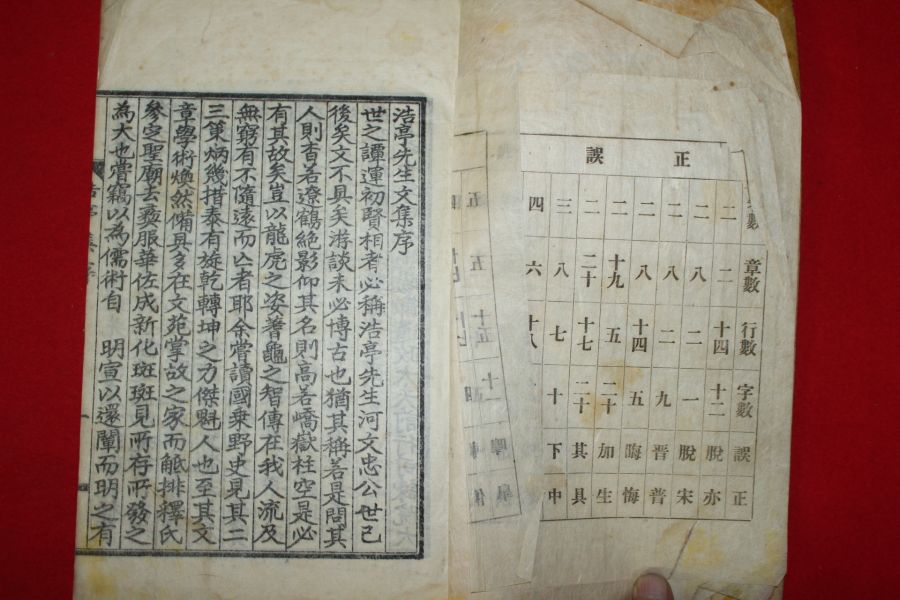 正誤
數 章數 行數 字數 誤 正
二 二 十四 十二 脫 亦
二 八 二 一 脫 宋
二 八 二 九 晋 普
二 八 十四 五 晦 悔
二 十九 五 二十 加 生
二 二十 十七 二十 其 具
三 八 七 十 下 中
四 六 十八
浩亭先生文集序
世之譚運初賢相者必稱浩亭先生河文忠公世已
後矣文不具矣游談未必博古也猶其稱若是問其
人則杳若遼鶴絶影仰其名則高若嶠嶽柱空是必
有其故矣豈以龍虎之姿蓍龜之智傳在我人流及
無窮有不隨遠而亾者耶余嘗讀國乘野史見其二
三第炳幾措泰有旋乾轉坤之力傑魁人也至其文
章學術煥然備具多在文苑掌故之家而觝排釋氏
參定聖廟去蔉服華佐成新化斑斑見所存所發之
為大也嘗竊以為儒術自 明宣以還闡而明之有